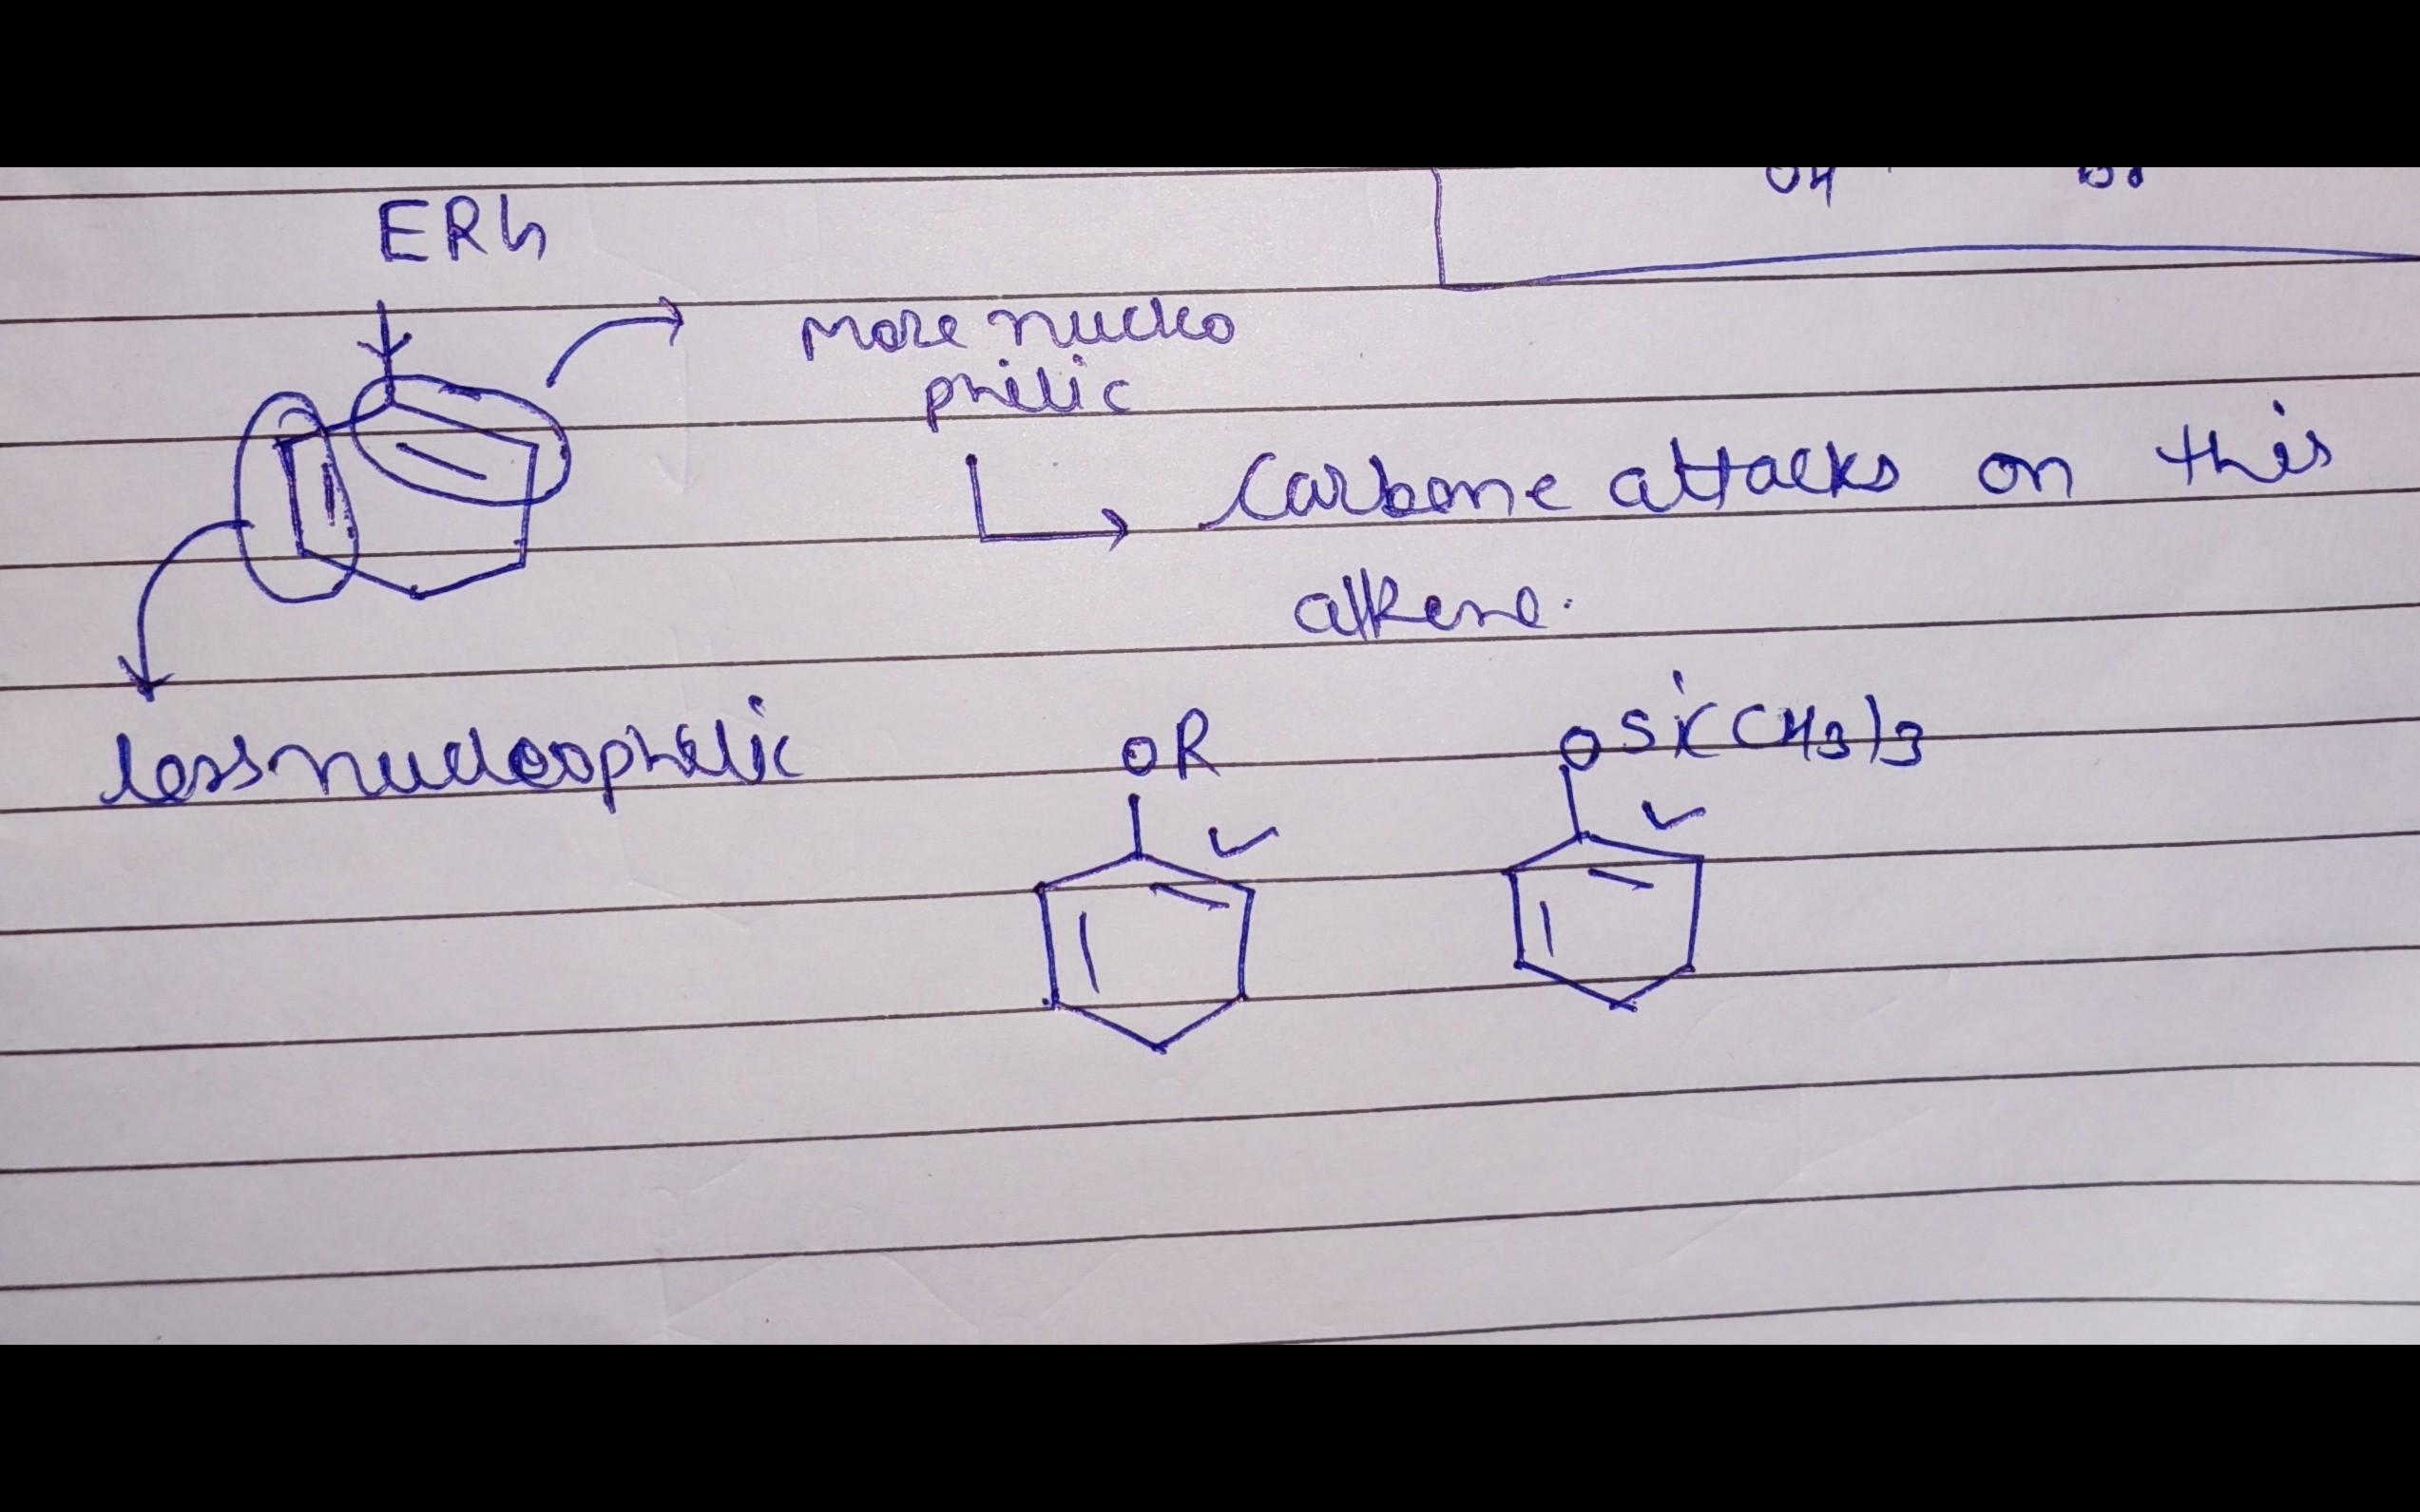 ERG
More nucleo
philic
Carbene attacks on this
alkene.
less nucleophilic
OR
OSi(CH3)3